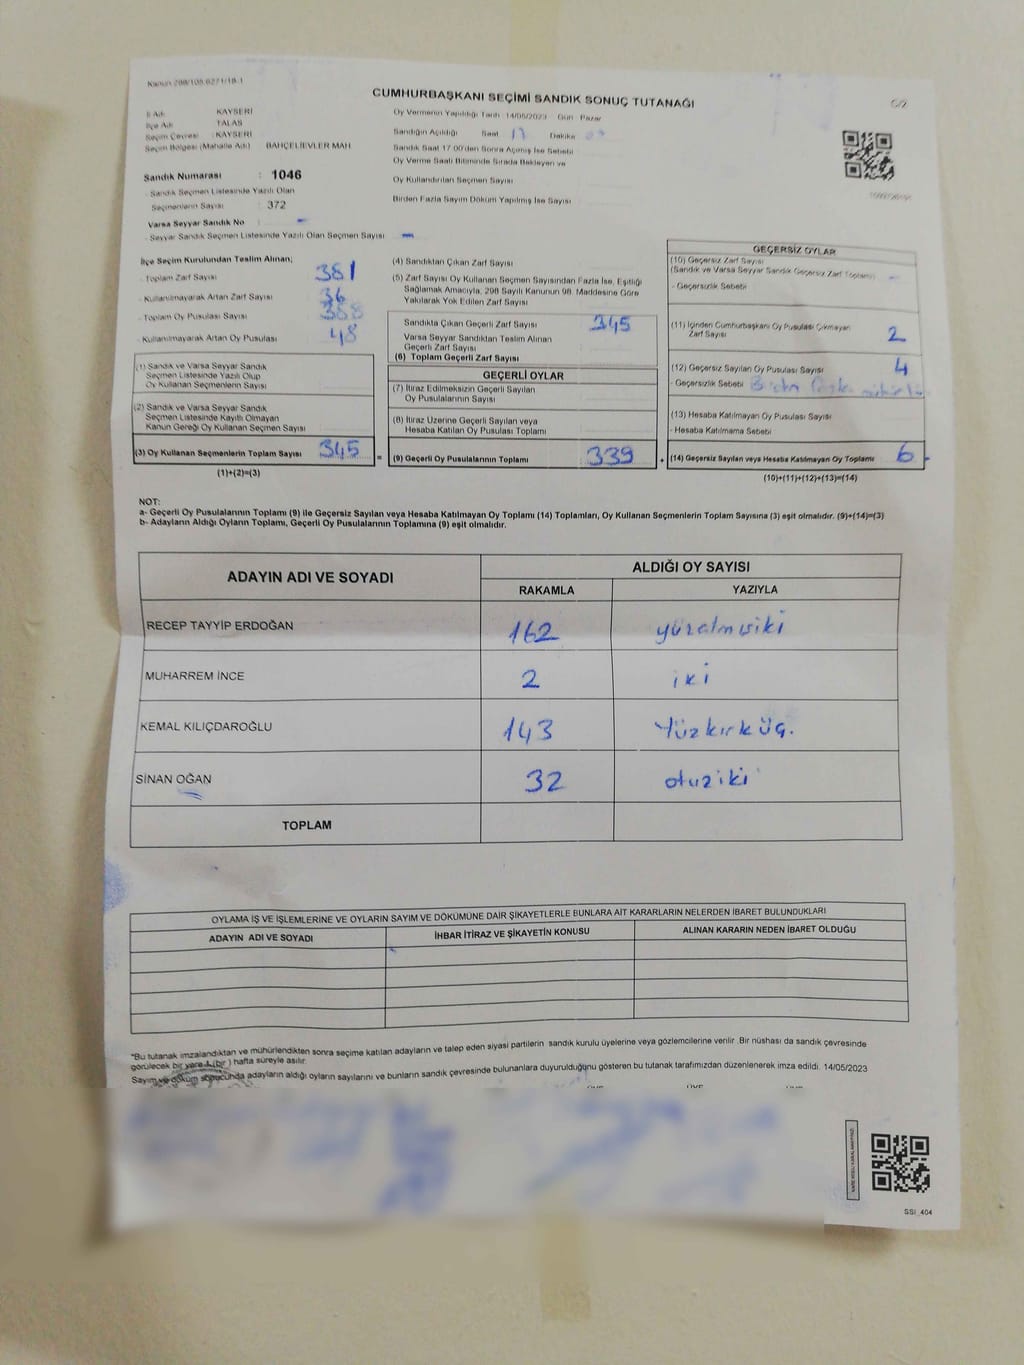 Kanun 298/105.6271/18.1
CUMHURBAŞKANI SEÇİMİ SANDIK SONUÇ TUTANAĞI
C/2
İl Adı : KAYSERİ
İlçe Adı : TALAS
Seçim Çevresi : KAYSERİ
Seçim Bölgesi (Mahalle Adı) BAHÇELİEVLER MAH
Sandık Numarası : 1046
- Sandık Seçmen Listesinde Yazılı Olan
Seçmenlerin Sayısı : 372
Varsa Seyyar Sandık No : -
- Seyyar Sandık Seçmen Listesinde Yazılı Olan Seçmen Sayısı : -
Oy Vermenin Yapıldığı Tarih 14/05/2023 Gün Pazar
Sandığın Açıldığı Saat 17 Dakika
Sandık Saat 17:00'den Sonra Açılmış İse Sebebi
Oy Verme Saati Bitiminde Sırada Bekleyen ve
Oy Kullandırılan Seçmen Sayısı
Birden Fazla Sayım Döküm Yapılmış İse Sayısı
İlçe Seçim Kurulundan Teslim Alınan;
- Toplam Zarf Sayısı 381
- Kullanılmayarak Artan Zarf Sayısı 36
- Toplam Oy Pusulası Sayısı
- Kullanılmayarak Artan Oy Pusulası 48
(1) Sandık ve Varsa Seyyar Sandık
Seçmen Listesinde Yazılı Olup
Oy Kullanan Seçmenlerin Sayısı
(2) Sandık ve Varsa Seyyar Sandık
Seçmen Listesinde Kayıtlı Olmayan
Kanun Gereği Oy Kullanan Seçmen Sayısı
(3) Oy Kullanan Seçmenlerin Toplam Sayısı 345 =
(1)+(2)=(3)
(4) Sandıktan Çıkan Zarf Sayısı
(5) Zarf Sayısı Oy Kullanan Seçmen Sayısından Fazla İse, Eşitliği
Sağlamak Amacıyla, 298 Sayılı Kanunun 98. Maddesine Göre
Yakılarak Yok Edilen Zarf Sayısı
Sandıkta Çıkan Geçerli Zarf Sayısı 345
Varsa Seyyar Sandıktan Teslim Alınan
Geçerli Zarf Sayısı
(6) Toplam Geçerli Zarf Sayısı
GEÇERLİ OYLAR
(7) İtiraz Edilmeksizin Geçerli Sayılan
Oy Pusulalarının Sayısı
(8) İtiraz Üzerine Geçerli Sayılan veya
Hesaba Katılan Oy Pusulası Toplamı
(9) Geçerli Oy Pusulalarının Toplamı 339 +
GEÇERSİZ OYLAR
(10) Geçersiz Zarf Sayısı
(Sandık ve Varsa Seyyar Sandık Geçersiz Zarf Toplamı) -
- Geçersizlik Sebebi
(11) İçinden Cumhurbaşkanı Oy Pusulası Çıkmayan
Zarf Sayısı 2
(12) Geçersiz Sayılan Oy Pusulası Sayısı 4
- Geçersizlik Sebebi
(13) Hesaba Katılmayan Oy Pusulası Sayısı
- Hesaba Katılmama Sebebi
(14) Geçersiz Sayılan veya Hesaba Katılmayan Oy Toplamı 6
(10)+(11)+(12)+(13)=(14)
NOT:
a- Geçerli Oy Pusulalarının Toplamı (9) ile Geçersiz Sayılan veya Hesaba Katılmayan Oy Toplamı (14) Toplamları, Oy Kullanan Seçmenlerin Toplam Sayısına (3) eşit olmalıdır. (9)+(14)=(3)
b- Adayların Aldığı Oyların Toplamı, Geçerli Oy Pusulalarının Toplamına (9) eşit olmalıdır.
ADAYIN ADI VE SOYADI
ALDIĞI OY SAYISI
RAKAMLA YAZIYLA
RECEP TAYYİP ERDOĞAN 162 yüzatmışiki
MUHARREM İNCE 2 iki
KEMAL KILIÇDAROĞLU 143 Yüzkırküç.
SİNAN OĞAN 32 otuziki
TOPLAM
OYLAMA İŞ VE İŞLEMLERİNE VE OYLARIN SAYIM VE DÖKÜMÜNE DAİR ŞİKAYETLERLE BUNLARA AİT KARARLARIN NELERDEN İBARET BULUNDUKLARI
ADAYIN ADI VE SOYADI İHBAR İTİRAZ VE ŞİKAYETİN KONUSU ALINAN KARARIN NEDEN İBARET OLDUĞU
*Bu tutanak imzalandıktan ve mühürlendikten sonra seçime katılan adayların ve talep eden siyasi partilerin sandık kurulu üyelerine veya gözlemcilerine verilir .Bir nüshası da sandık çevresinde
görülecek bir yere 1 (bir ) hafta süreyle asılır.
Sayım ve döküm sonucunda adayların aldığı oyların sayılarını ve bunların sandık çevresinde bulunanlara duyurulduğunu gösteren bu tutanak tarafımızdan düzenlenerek imza edildi. 14/05/2023
SSI_404